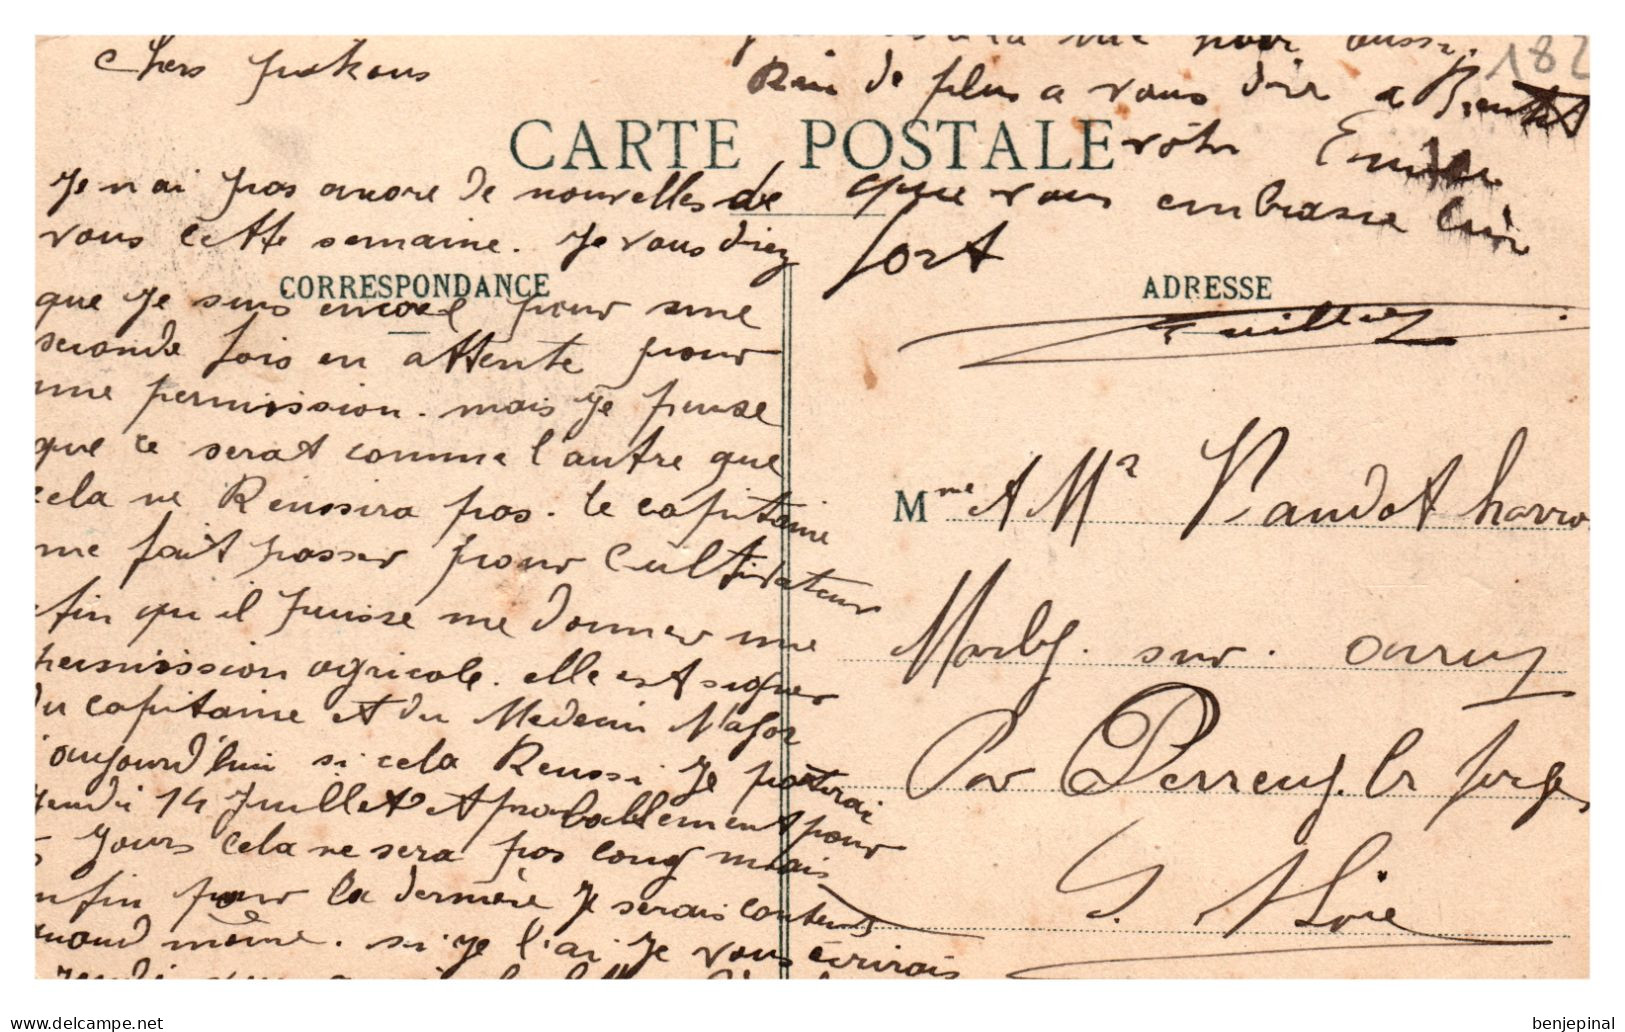 182
Chers
Je n ai pas ancore de nouvelles de
vous cette semaine. Je vous direz
que Je suis encore pour une
seconde fois en attente pour
une permission. mais Je pense
que ce serat comme l'autre que
cela ne Reussira pas. le capitaine
me fait passer pour Cultivateur
afin qu il puisse me donner une
permission agricole. elle est signer
du capitaine et du Medecin Major
aujourd'hui si cela Reussi Je partirai
jeudi 14 Juillet et probablement pour
Jours cela ne sera pas long mais
enfin pour la dernière Je serais contents
quand même. si je l'ai Je vous écrirais
pour aussi.
Rien de plus a vous dire a Bientot
votre Emile
que vous embrasse bien
fort
CARTE POSTALE
CORRESPONDANCE
ADRESSE
Mme et Mr Vaudot
sur
Par Perrecy les forges
S. et Loire
delcampe.net
benjepinal